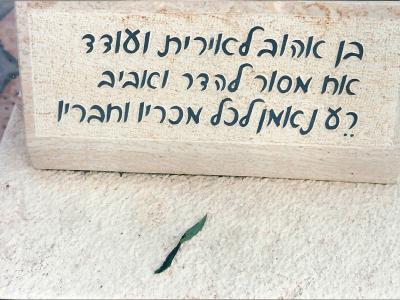 בן אהוב לאירית ועודד
אח מסור להדר ואביב
רע נאמן לכל מכריו וחבריו